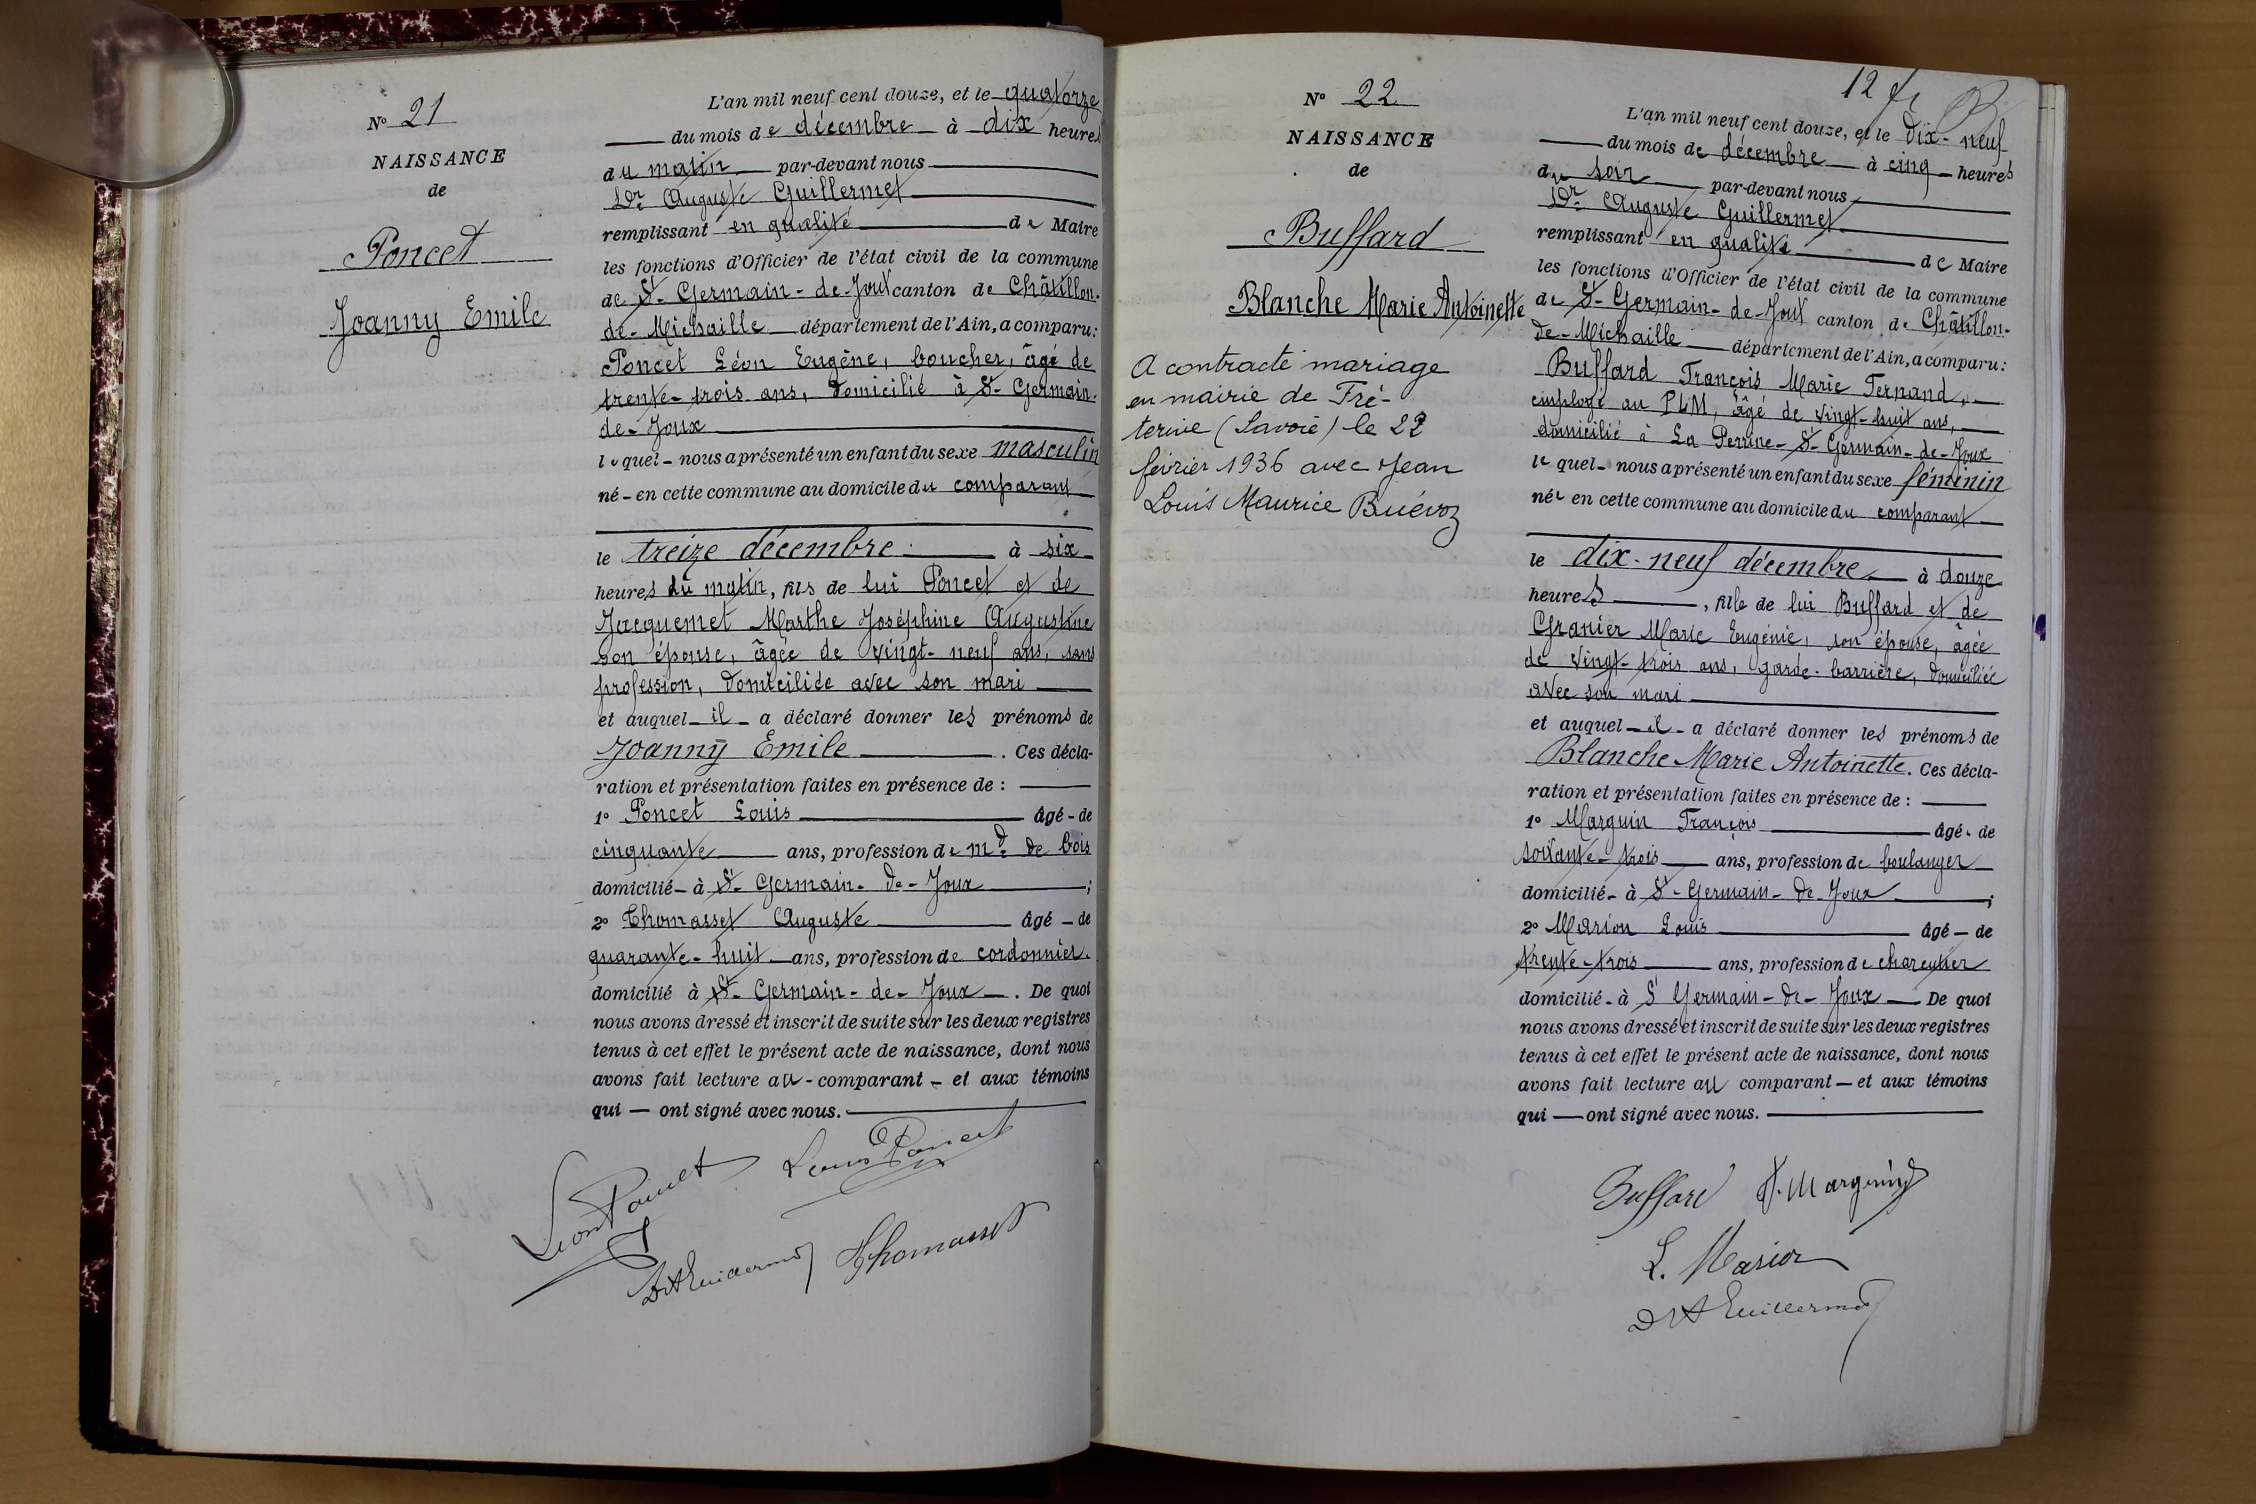 N° 21
NAISSANCE
de
Poncet
Joanny Emile
L'an mil neuf cent douze, et le quatorze
du mois de décembre à dix heures
du matin par-devant nous
Dr Auguste Guillermet
remplissant en qualité de Maire
les fonctions d'Officier de l'état civil de la commune
de St-Germain-de-Joux canton de Châtillon-
de-Michaille département de l'Ain, a comparu:
Poncet Léon Eugène, boucher, âgé de
trente-trois ans, domicilié à St-Germain-
de-Joux
lequel nous a présenté un enfant du sexe masculin
né en cette commune au domicile du comparant
le treize décembre à six
heures du matin, fils de lui Poncet et de
Jacquemet Marthe Joséphine Augustine
son épouse, âgée de vingt-neuf ans, sans
profession, domiciliée avec son mari
et auquel il a déclaré donner les prénoms de
Joanny Emile. Ces décla-
ration et présentation faites en présence de :
1° Poncet Louis âgé de
cinquante ans, profession de md de bois
domicilié à St-Germain-de-Joux ;
2° Thomasset Auguste âgé de
quarante-huit ans, profession de cordonnier.
domicilié à St-Germain-de-Joux. De quoi
nous avons dressé et inscrit de suite sur les deux registres
tenus à cet effet le présent acte de naissance, dont nous
avons fait lecture au comparant et aux témoins
qui ont signé avec nous.
Léon Poncet Louis Poncet
Dr A Guillermet Thomasset
12 fr
N° 22
NAISSANCE
de
Buffard
Blanche Marie Antoinette
A contracté mariage
en mairie de Fré-
terive (Savoie) le 22
février 1936 avec Jean
Louis Maurice Buévoz
L'an mil neuf cent douze, et le dix-neuf
du mois de décembre à cinq heures
du soir par-devant nous
Dr Auguste Guillermet
remplissant en qualité de Maire
les fonctions d'Officier de l'état civil de la commune
de St-Germain-de-Joux canton de Châtillon-
de-Michaille département de l'Ain, a comparu:
Buffard François Marie Fernand,
employé au PLM, âgé de vingt-huit ans,
domicilié à La Perrine-St-Germain-de-Joux
lequel nous a présenté un enfant du sexe féminin
née en cette commune au domicile du comparant
le dix-neuf décembre à douze
heures, fille de lui Buffard et de
Granier Marie Eugénie, son épouse, âgée
de vingt-trois ans, garde-barrière, domiciliée
avec son mari
et auquel il a déclaré donner les prénoms de
Blanche Marie Antoinette. Ces décla-
ration et présentation faites en présence de :
1° Marguin François âgé de
soixante-trois ans, profession de boulanger
domicilié à St-Germain-de-Joux ;
2° Marion Louis âgé de
trente-trois ans, profession de charcutier
domicilié à St Germain-de-Joux De quoi
nous avons dressé et inscrit de suite sur les deux registres
tenus à cet effet le présent acte de naissance, dont nous
avons fait lecture au comparant et aux témoins
qui ont signé avec nous.
Buffard F. Marguin
L. Marion
Dr A Guillermet